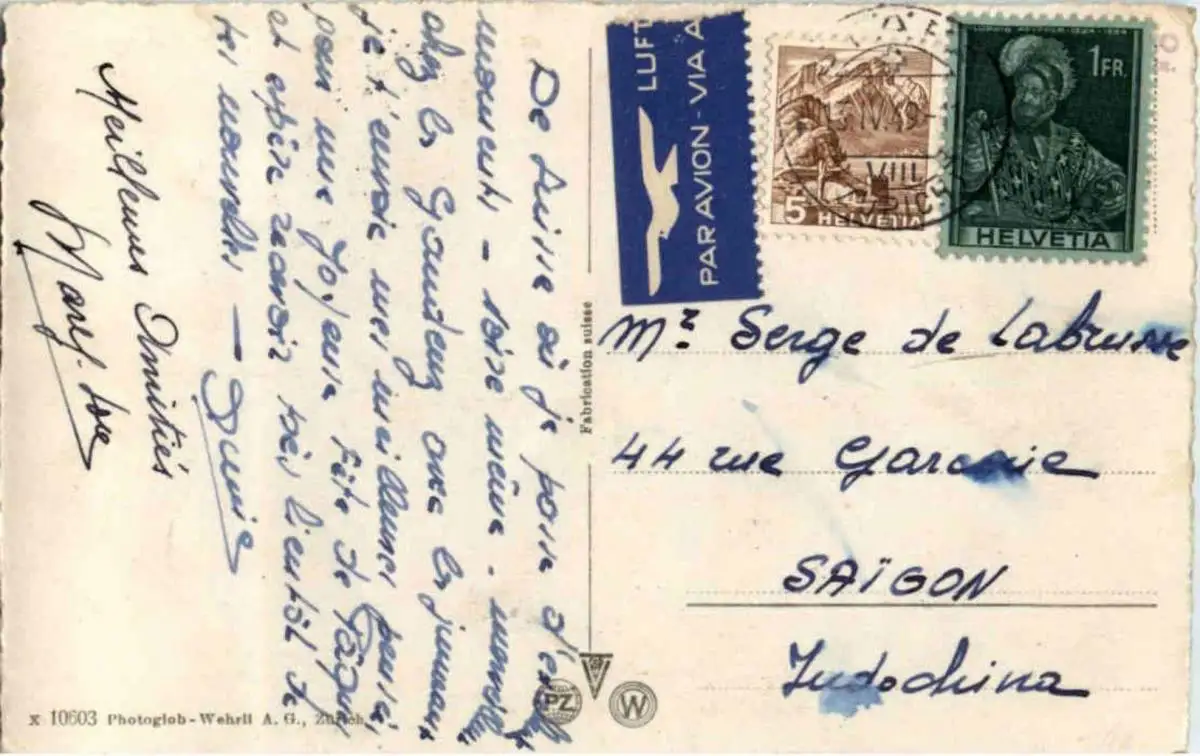 De Suisse où je passe d'exc
moments – voire même -
chez les Gaudenz avec les jumeaux
je t'envoie mes meilleures pensées
pour une joyeuse fête de Pâques
et espère recevoir très bientôt de
tes nouvelles –
Meilleures Amitiés
LUFT
PAR AVION - VIA A
5 HELVETIA
VIII
1 FR.
HELVETIA
Mr. Serge de Labrusse
44 rue
SAÏGON
Indochina
Fabrication suisse
PZ
W
X 10603 Photoglob - Wehrli A. G., Zürich.